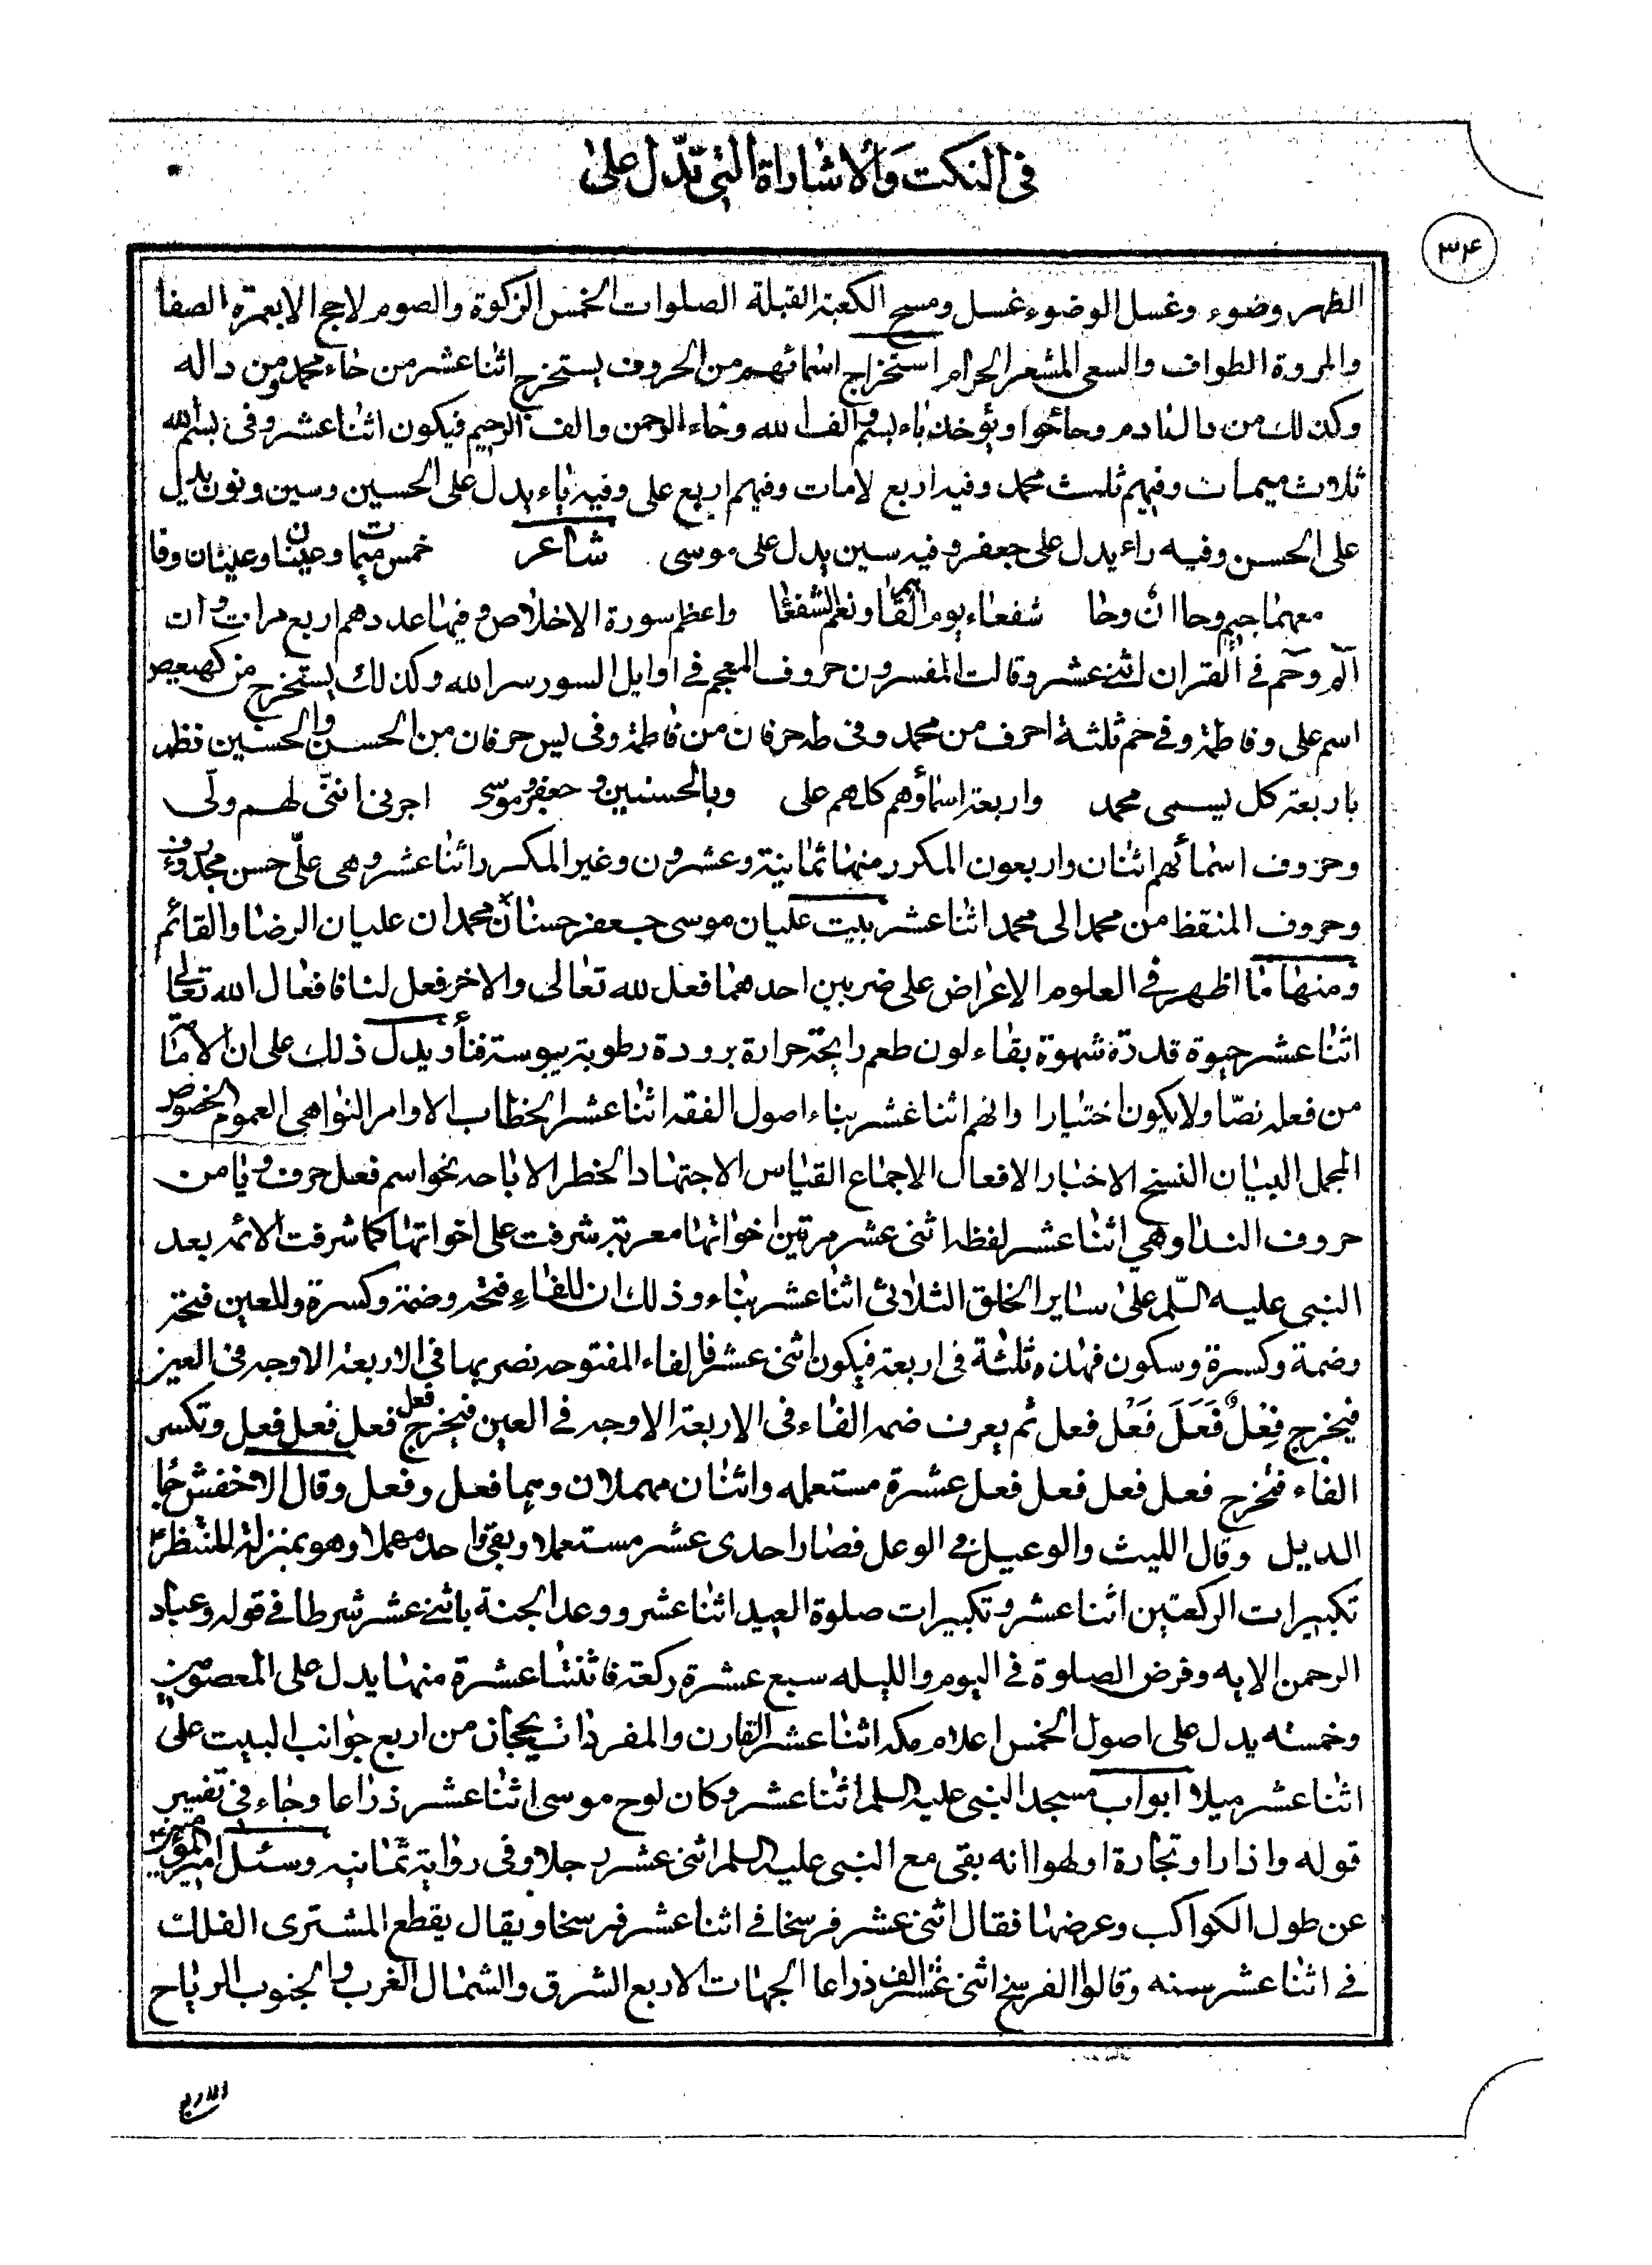 في النكت والاشاراة التي تدل على
٣٤
الظهر وضوء وغسل الوضوء غسل ومسح الكعبة القبلة الصلوات الخمس الزكوة والصوم لا حج الا بعمرة الصفا
والمروة الطواف والسعى المشعر الحرام استخراج اسمائهم من الحروف يستخرج اثنا عشر من حاء محمد ومن داله
وكذلك من دال ادم وحا حوا ويؤخذ باء بسم والف الله وحاء الرحمن والف الرحيم فيكون اثنا عشر وفى بسم الله
ثلاث ميمات وفيهم ثلث محمد وفيه اربع لامات وفيهم اربع على وفيه ياء يدل على الحسين وسين ونون يدل
على الحسن وفيه راء يدل على جعفر وفيه سين يدل على موسى شاعر خمس ميمات وعينان وعينان وفا
معهما جيم وحا ان وحا شفعاء يوم القا ونعم الشفعا واعظم سورة الاخلاص وفيها عددهم اربع مرات وان
الم وحم في القران اثنى عشر وقالت المفسرون حروف المعجم في اوايل السور سر الله وكذلك يستخرج من كهيعص
اسم على وفاطمة وفي حم ثلثة احرف من محمد وفى طه حرفان من فاطمة وفى يس حرفان من الحسن والحسين نظم
باربعة كل يسمى محمد واربعة اسماؤهم كلهم على وبالحسنين وجعفر وموسى اجرنى اننى لهم ولى
وحروف اسمائهم اثنان واربعون المكرر منها ثمانية وعشرون وغير المكرر اثنا عشر وهى على حسن محمد
وحروف المنتظ من محمد الى محمد اثنا عشر بيت عليان موسى جعفر حسنان محمدان عليان الرضا والقائم
ومنها ما اظهر في العلوم الاعراض على ضربين احدهما فعل لله تعالى والاخر فعل لنا فافعال الله تعالى
اثنا عشر حيوة قدرة شهوة بقاء لون طعم رايحة حرارة برودة رطوبة يبوسة فناء ويدل ذلك على ان الامام
من فعله نصّا ولا يكون اختيارا وانهم اثنا عشر بناء اصول الفقه اثنا عشر الخطاب الاوامر النواهى العموم الخصوص
المجمل البيان النسخ الاخبار الافعال الاجماع القياس الاجتهاد الخطر الاباحه نحو اسم فعل حرف و يا من
حروف الندا وهي اثنا عشر لفظه اثنى عشر مرتين اخواتها معربة شرفت على اخواتها كما شرفت الائمه بعد
النبى عليه السّلم على ساير الخلق الثلاثى اثنا عشر بناء وذلك ان للفاء فتحه وضمة وكسرة وللعين فتحة
وضمة وكسرة وسكون فهذه ثلثة فى اربعة فيكون اثنى عشر فالفاء المفتوحه نصر بها فى الاربعة الاوجه فى العين
فيخرج فِعْلٌ فَعَلَ فَعْل فعل ثم يعرف ضمه الفاء فى الاربعة الاوجه في العين فيخرج فعل فعل فعل فعل وتكسر
الفاء فتخرج فعل فعل فعل فعل عشرة مستعمله واثنان مهملان وهما فعل وفعل وقال الاخفش جا
الديل وقال الليث والوعيل فى الوعل فصار احدى عشر مستعملا وبقى واحد مهملا وهو بمنزلة المنتظر
تكبيرات الركعتين اثنا عشر وتكبيرات صلوة العيد اثنا عشر ووعد الجنة باثنى عشر شرطا في قوله وعباد
الرحمن الايه وفرض الصلوة في اليوم والليله سبع عشرة ركعة فاثنتا عشرة منها يدل على المعصومين
وخمسته يدل على اصول الخمس اعلام مكه اثنا عشر القارن والمفرد يحجان من اربع جوانب البيت على
اثنا عشر ميلا ابواب مسجد النبى عليه السلم اثنا عشر وكان لوح موسى اثنا عشر ذراعا وجاء فى تفسير
قوله واذا راوا تجارة او لهوا انه بقى مع النبى عليه السلم اثنى عشر رجلا وفى رواية ثمانيه وسئل امير المؤمنين
عن طول الكواكب وعرضها فقال اثنى عشر فرسخا في اثنا عشر فرسخا ويقال يقطع المشترى الفلك
في اثنا عشر سنه وقالوا الفرسخ اثنى عشر الف ذراعا الجهات الاربع الشرق والشمال الغرب والجنوب الرياح
الاربع